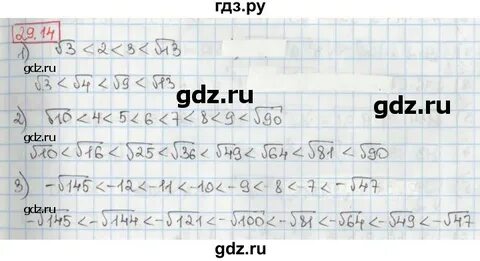 гдз.ру
29.14
1) √3 < 2 < 3 < √13
√3 < √4 < √9 < √13
gdz.ru
gdz.ru
2) √10 < 4 < 5 < 6 < 7 < 8 < 9 < √90
√10 < √16 < √25 < √36 < √49 < √64 < √81 < √90
3) -√145 < -12 < -11 < -10 < -9 < -8 < -7 < -√47
gdz.ru
gdz.ru
-√145 < -√144 < -√121 < -√100 < -√81 < -√64 < -√49 < -√47